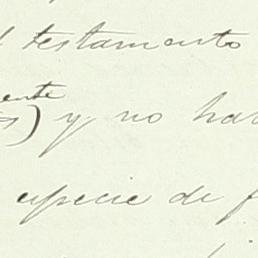 l testamento
ente
) y no ha
especie de f